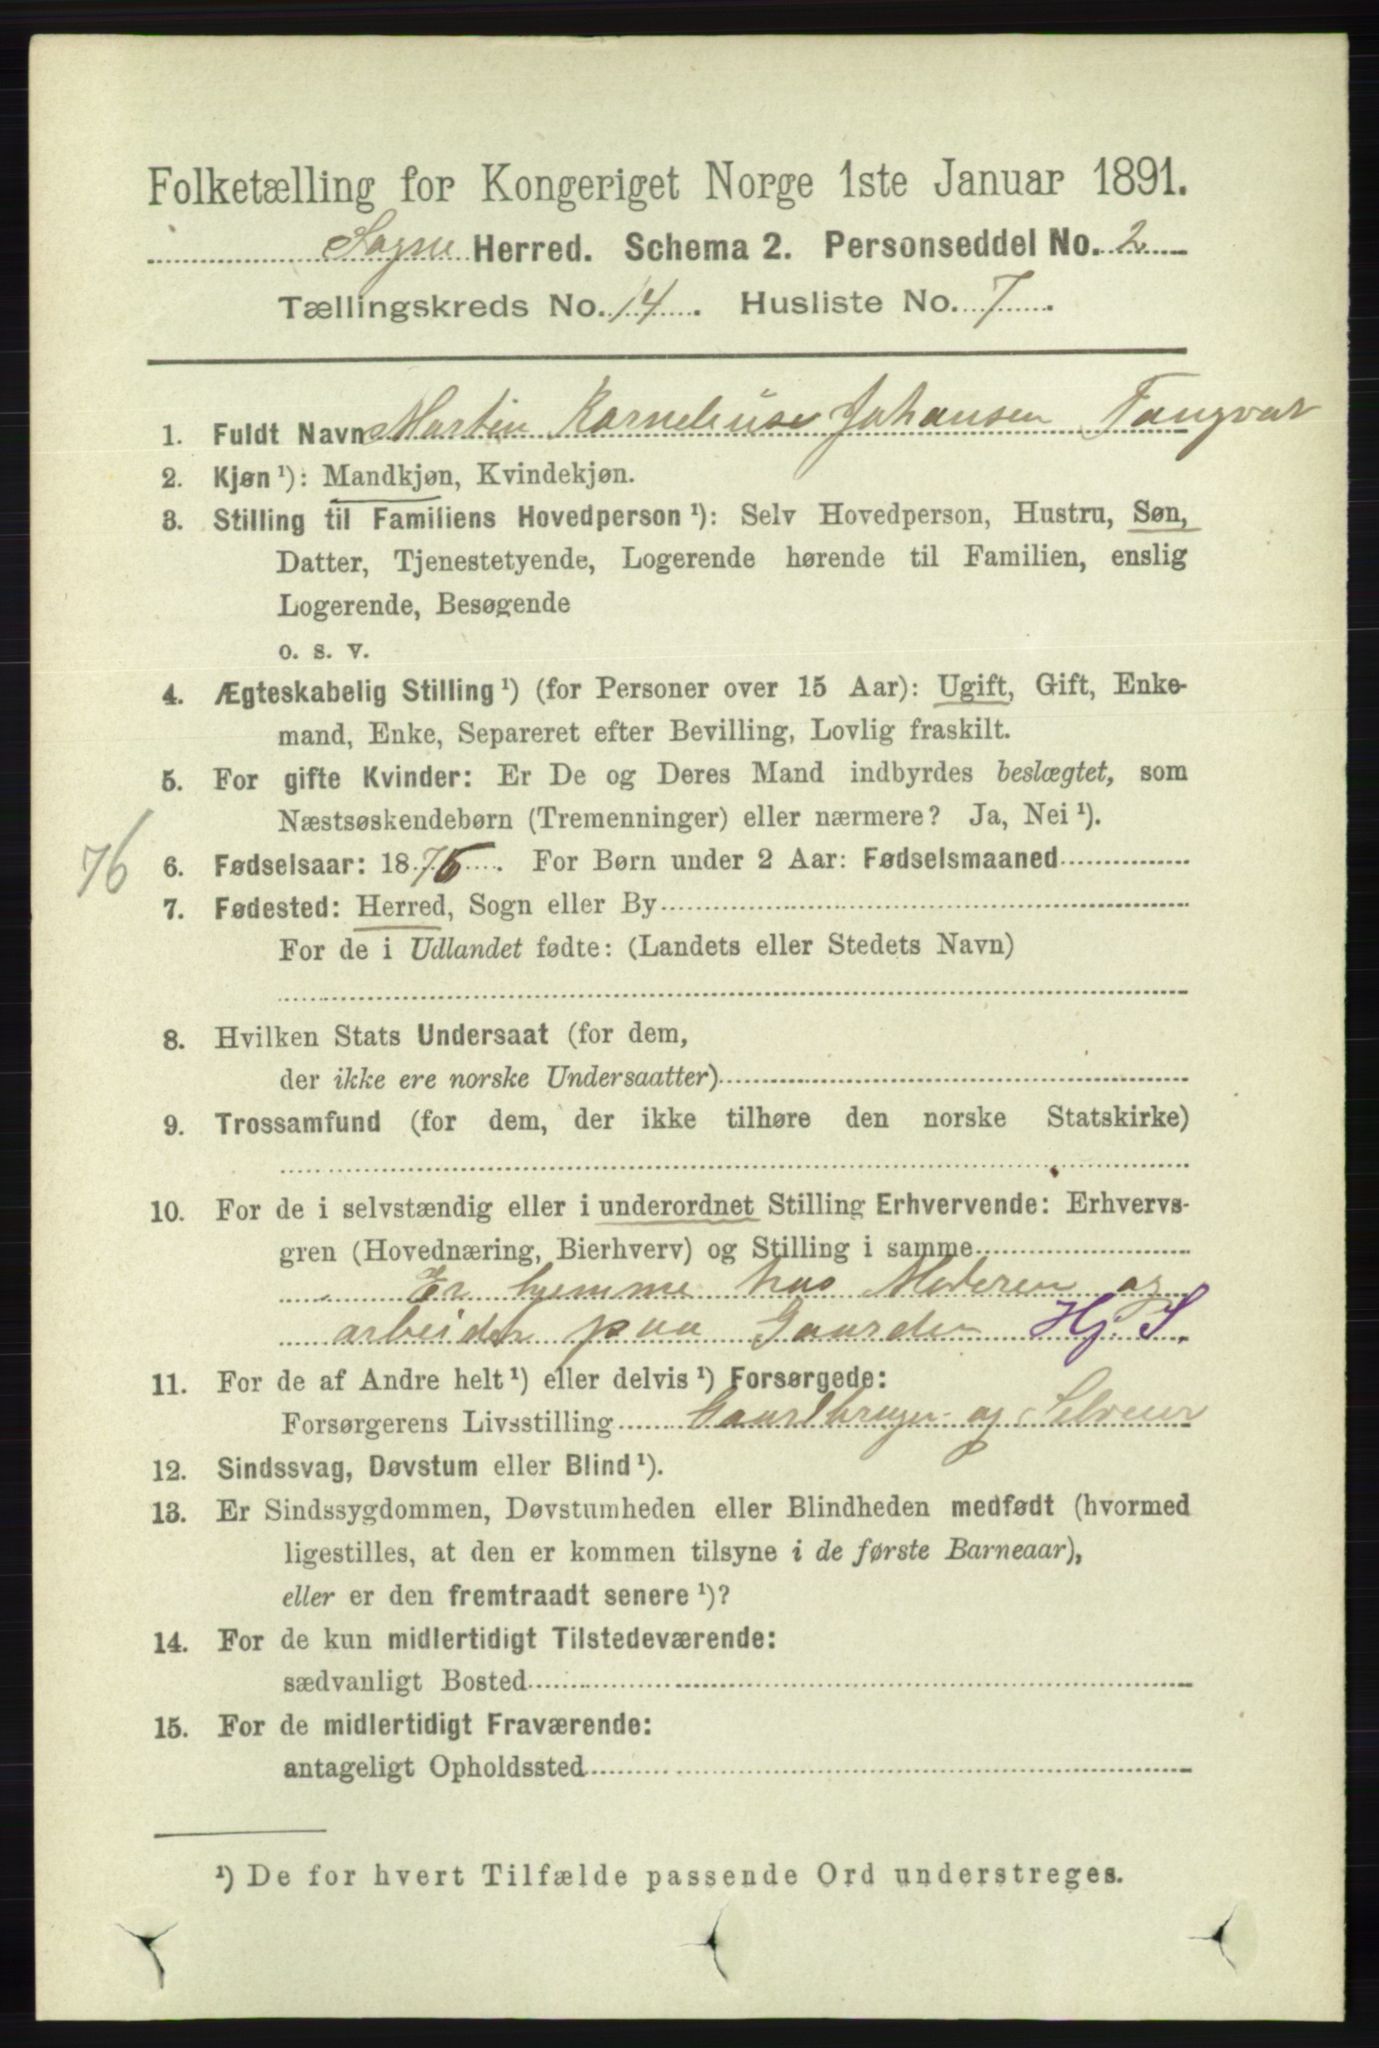 Folketælling for Kongeriget Norge 1ste Januar 1891.
Søgne Herred. Schema 2. Personseddel No. 2
Tællingskreds No. 14. Husliste No. 7.
1. Fuldt Navn Martin Kornelius Johansen Tangvar
2. Kjøn ¹): Mandkjøn, Kvindekjøn.
3. Stilling til Familiens Hovedperson ¹): Selv Hovedperson, Hustru, Søn,
Datter, Tjenestetyende, Logerende hørende til Familien, enslig
Logerende, Besøgende
o. s. v.
4. Ægteskabelig Stilling ¹) (for Personer over 15 Aar): Ugift, Gift, Enke-
mand, Enke, Separeret efter Bevilling, Lovlig fraskilt.
5. For gifte Kvinder: Er De og Deres Mand indbyrdes beslægtet, som
Næstsøskendebørn (Tremenninger) eller nærmere? Ja, Nei ¹).
76
6. Fødselsaar: 1876. For Børn under 2 Aar: Fødselsmaaned
7. Fødested: Herred, Sogn eller By
For de i Udlandet fødte: (Landets eller Stedets Navn)
8. Hvilken Stats Undersaat (for dem,
der ikke ere norske Undersaatter)
9. Trossamfund (for dem, der ikke tilhøre den norske Statskirke)
10. For de i selvstændig eller i underordnet Stilling Erhvervende: Erhvervs-
gren (Hovednæring, Bierhverv) og Stilling i samme
Er hjemme hos Moderen og
arbeider paa Gaarden Hj. S.
11. For de af Andre helt ¹) eller delvis ¹) Forsørgede:
Forsørgerens Livsstilling Gaardbruger og Selveier
12. Sindssvag, Døvstum eller Blind ¹).
13. Er Sindssygdommen, Døvstumheden eller Blindheden medfødt (hvormed
ligestilles, at den er kommen tilsyne i de første Barneaar),
eller er den fremtraadt senere ¹)?
14. For de kun midlertidigt Tilstedeværende:
sædvanligt Bosted
15. For de midlertidigt Fraværende:
antageligt Opholdssted
¹) De for hvert Tilfælde passende Ord understreges.